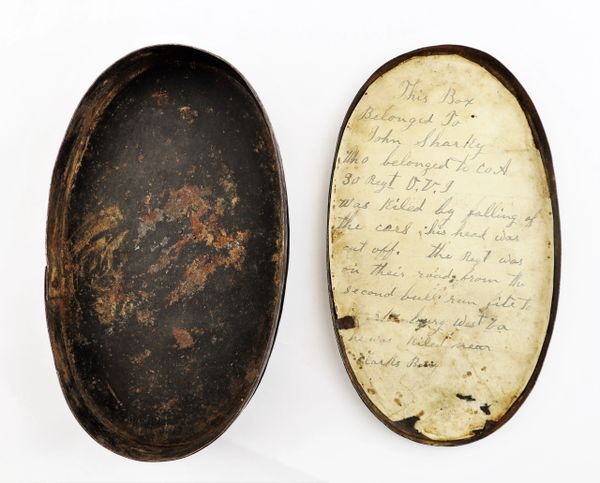 This Box
Belonged To
John Sharkly
Who belonged to Co. A
30 Regt O.V.I
Was Killed by falling of
the cars his head was
cut off. The Regt was
on their road from the
second bull run fite to
burg West Va
he was killed near
Clarks Burg